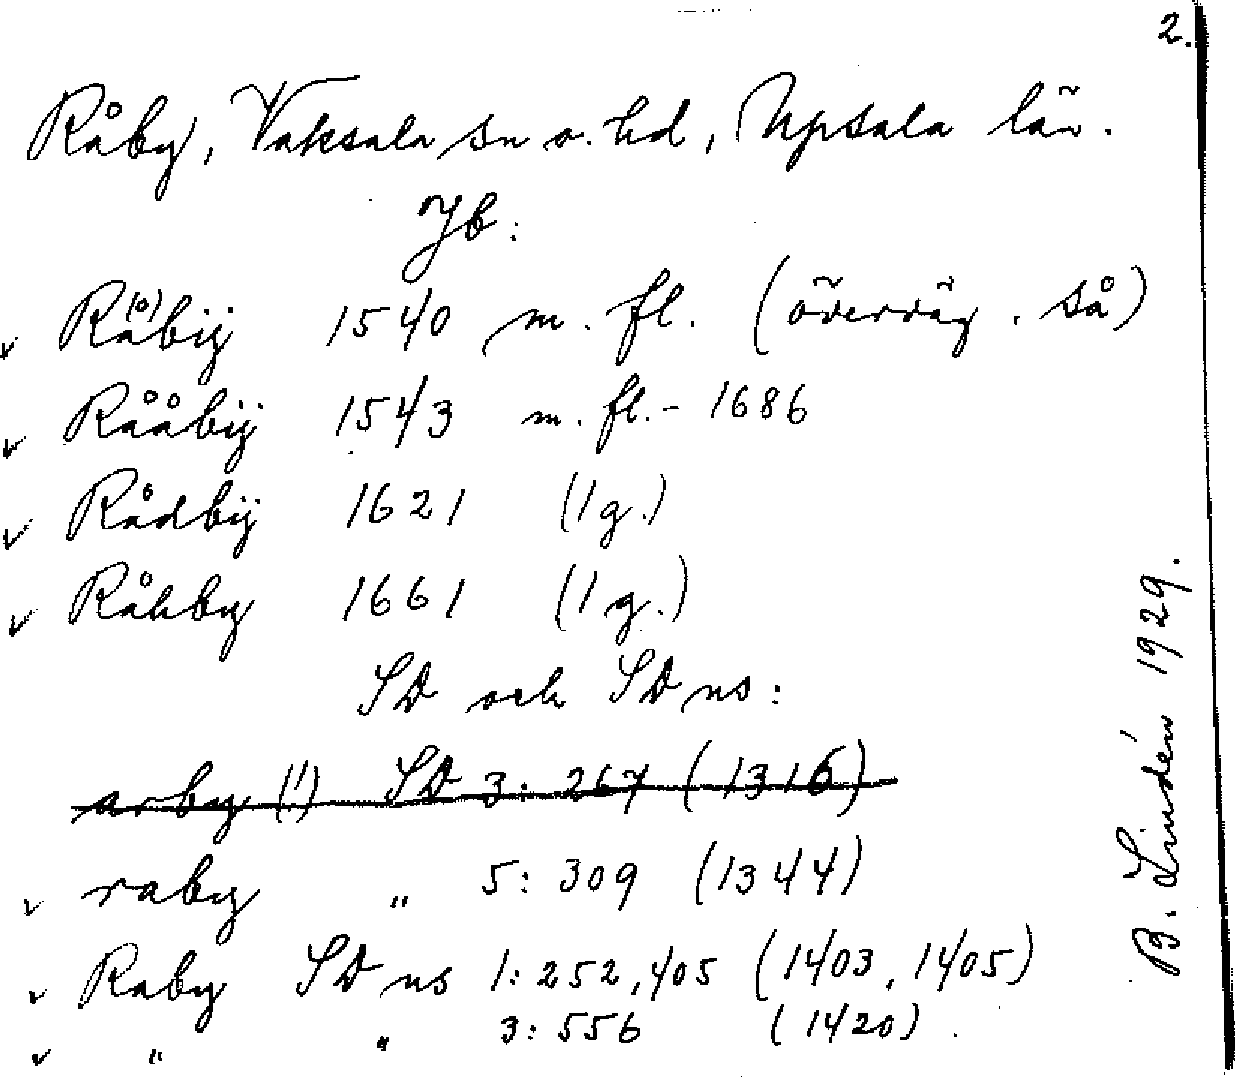 2.
Råby, Vaksala sn o. hd, Upsala län.
Jb:
v Rå(o)bÿ 1540 m. fl. (överväg. så)
v Rååbÿ 1543 m. fl. - 1686
v Rådbÿ 1621 (1 g.)
v Råhby 1661 (1 g.)
SD och SD ns:
arby (!) SD 3: 267 (1316)
v raby " 5: 309 (1344)
v Raby SD ns 1: 252, 405 (1403, 1405)
v " " 3: 556 (1420).
B. Lindén 1929.